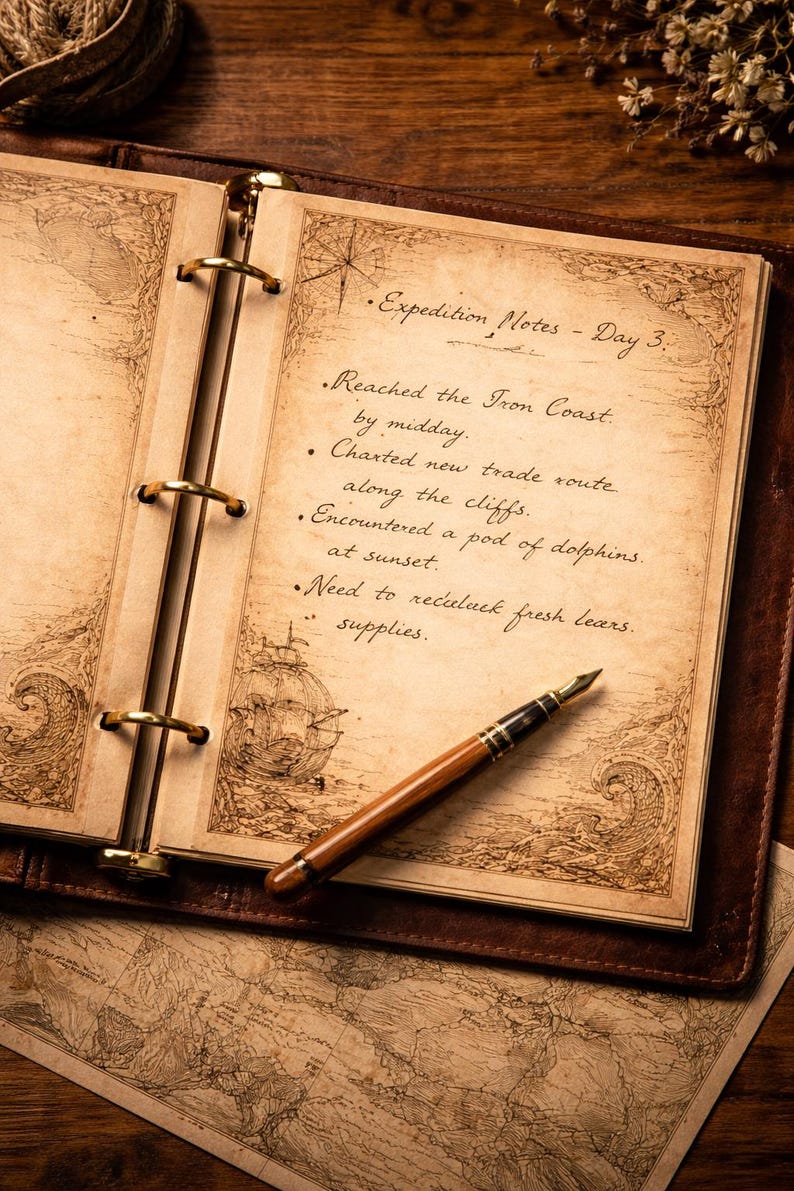 • Expedition Notes - Day 3:
• Reached the Iron Coast.
by midday.
• Charted new trade route
along the cliffs.
• Encountered a pod of dolphins.
at sunset.
• Need to fresh
supplies.